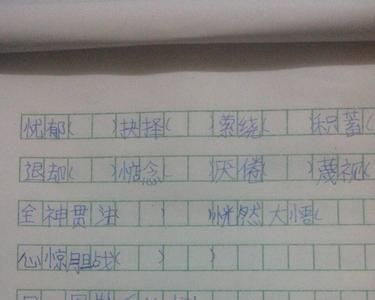 忧郁(  )抉择(  )萦绕(  )积蓄(
退却(  )惦念(  )厌倦(  )蔑视(
全神贯注(  )恍然大悟(
心惊胆战(  )